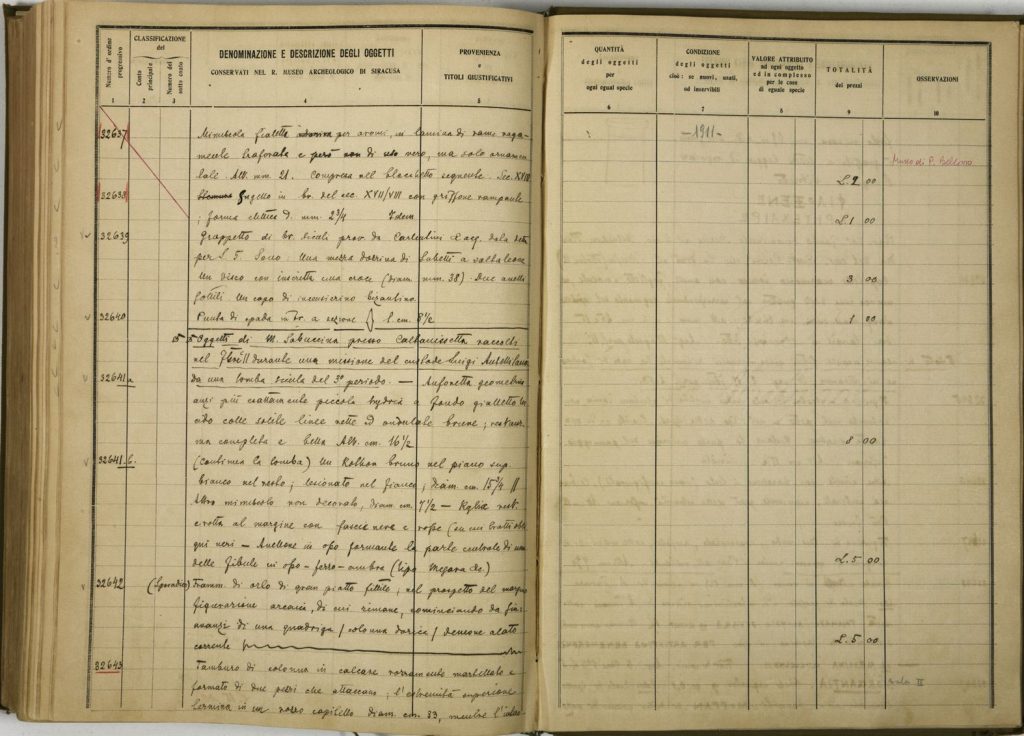 Numero d'ordine progressivo
CLASSIFICAZIONE
del
Conto principale
Numero del sotto conto
DENOMINAZIONE E DESCRIZIONE DEGLI OGGETTI
CONSERVATI NEL R. MUSEO ARCHEOLOGICO DI SIRACUSA
PROVENIENZA
e
TITOLI GIUSTIFICATIVI
1 2 3 4 5
32637 Minuscola fialetta per aromi, in lamina di rame vaga-
mente traforata e però non di uso vero, ma solo ornamen-
tale. Alt. mm. 21. Compresa nel blocchetto seguente. Sec. XVIII
32638 Suggello in br. del sec. XVII/VIII con griffone rampante
; forma elittica d. mm. 2 3/4 Idem
32639 Grappetto di br. siculi prov. da Carlentini acq. data
per L. 5. Sono: Una mezza dozzina di tubetti a saltaleone
Un disco con inscritta una croce (diam. mm. 38). Due anelli
fittili Un capo di incensierino bizantino.
32640 Punta di spada in br. a sezione l cm. 8 1/2
Oggetti di M. Sabuccina presso Caltanissetta raccolti
nel durante una missione del custode Luigi
32641 a da una tomba sicula del 3° periodo. — Anforetta geometrica
anzi più esattamente piccola hydria a fondo gialletto
colle solite linee rette ed ondulate brune;
ma completa e bella Alt. cm. 16 1/2
32641 b. (continua la tomba) Un Kothon bruno nel piano sup.
bianco nel resto; lesionato nel fianco; diam. cm. 15 3/4 ||
Altro minuscolo non decorato, diam. cm. 7 1/2 — Kylix
e rotta al margine con fascie nere e rosse (su cui tratti obli-
qui neri — Anellone in osso formante la parte centrale di una
delle fibule in osso-ferro-ambra (tipo Megara &c.)
32642 (Sporadico) Framm. di orlo di gran piatto fittile; nel prospetto del margine
figurazione arcaica, di cui rimane, cominciando da
innanzi di una quadriga / colonna dorica / demone alato
corrente
32643 Tamburo di colonna in calcare rozzamente martellato e
formato di due pezzi che attaccano; l'estremità superiore
termina in un rozzo capitello diam. cm. 33, mentre
QUANTITÀ
degli oggetti
per
ogni egual specie
CONDIZIONE
degli oggetti
cioè: se nuovi, usati,
od inservibili
VALORE ATTRIBUITO
ad ogni oggetto
ed in complesso
per le cose
di eguale specie
TOTALITÀ
dei prezzi
OSSERVAZIONI
6 7 8 9 10
— 1911 —
Museo di P. Bellomo
L. 2 00
L. 1 00
3 00
1 00
8 00
L. 5 00
L. 5 00
sala II